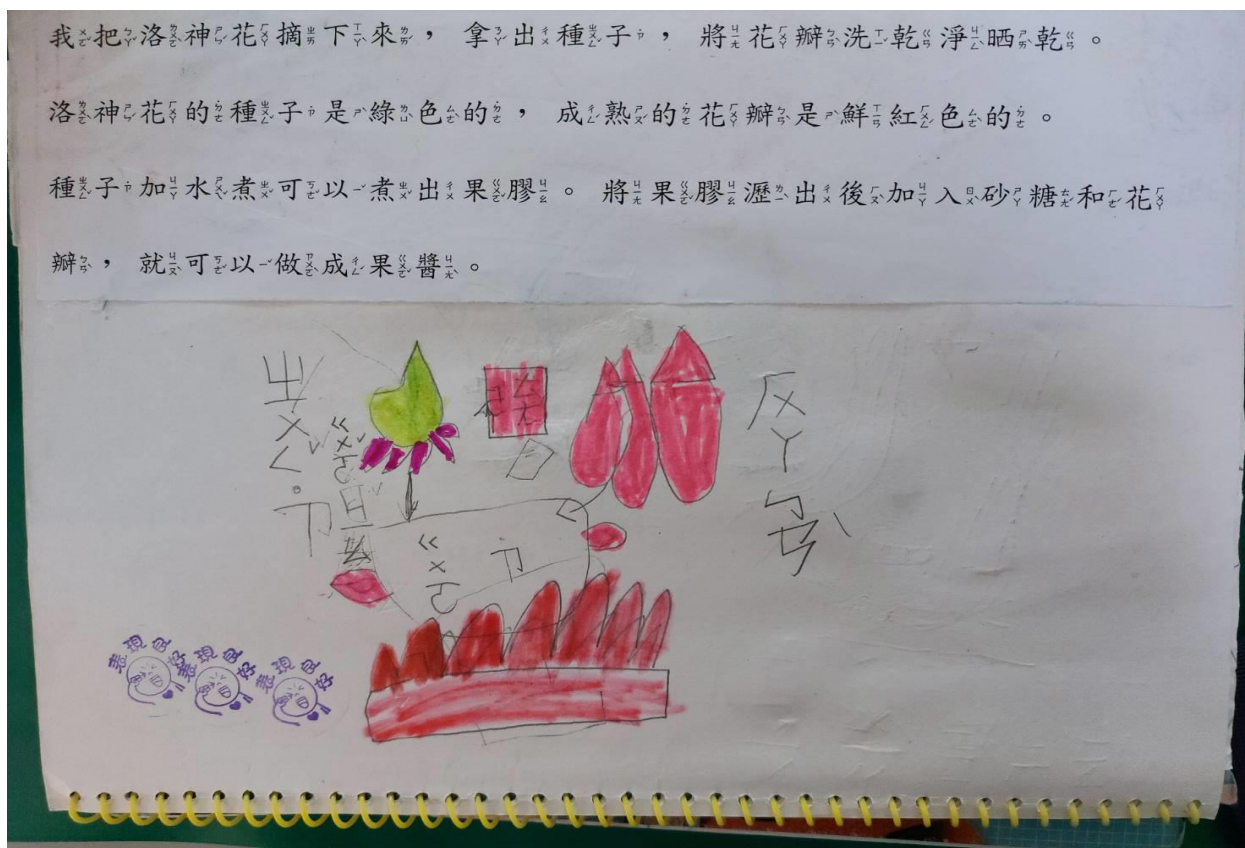 我把洛神花摘下來，拿出種子，將花瓣洗乾淨晒乾。
洛神花的種子是綠色的，成熟的花瓣是鮮紅色的。
種子加水煮可以煮出果膠。將果膠瀝出後加入砂糖和花
瓣，就可以做成果醬。
ㄓㄨㄥˇ ㄗ˙
ㄍㄨㄛˇ
ㄏㄨㄚ ㄅㄢˋ
ㄍㄨㄛ ㄗ
表現良好
表現良好
表現良好